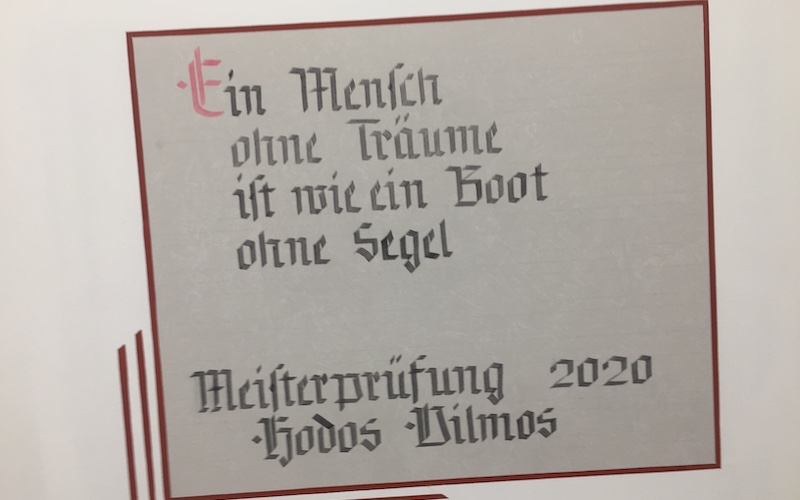 Ein Mensch
ohne Träume
ist wie ein Boot
ohne Segel
Meisterprüfung 2020
Hodos Vilmos